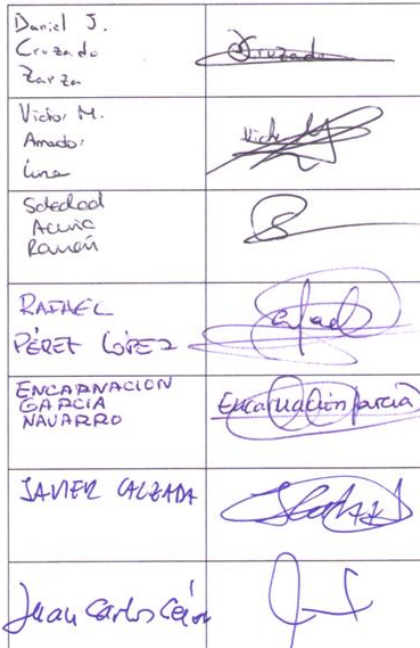 Daniel J.
Cruzado
Zarza
Cruzado
Victor M.
Amador
Luna
Victor
Soledad
Acuña
Ramón
RAFAEL
PÉREZ LÓPEZ
Rafael
ENCARNACION
GARCIA
NAVARRO
Encarnación García
JAVIER CALZADA
Juan Carlos